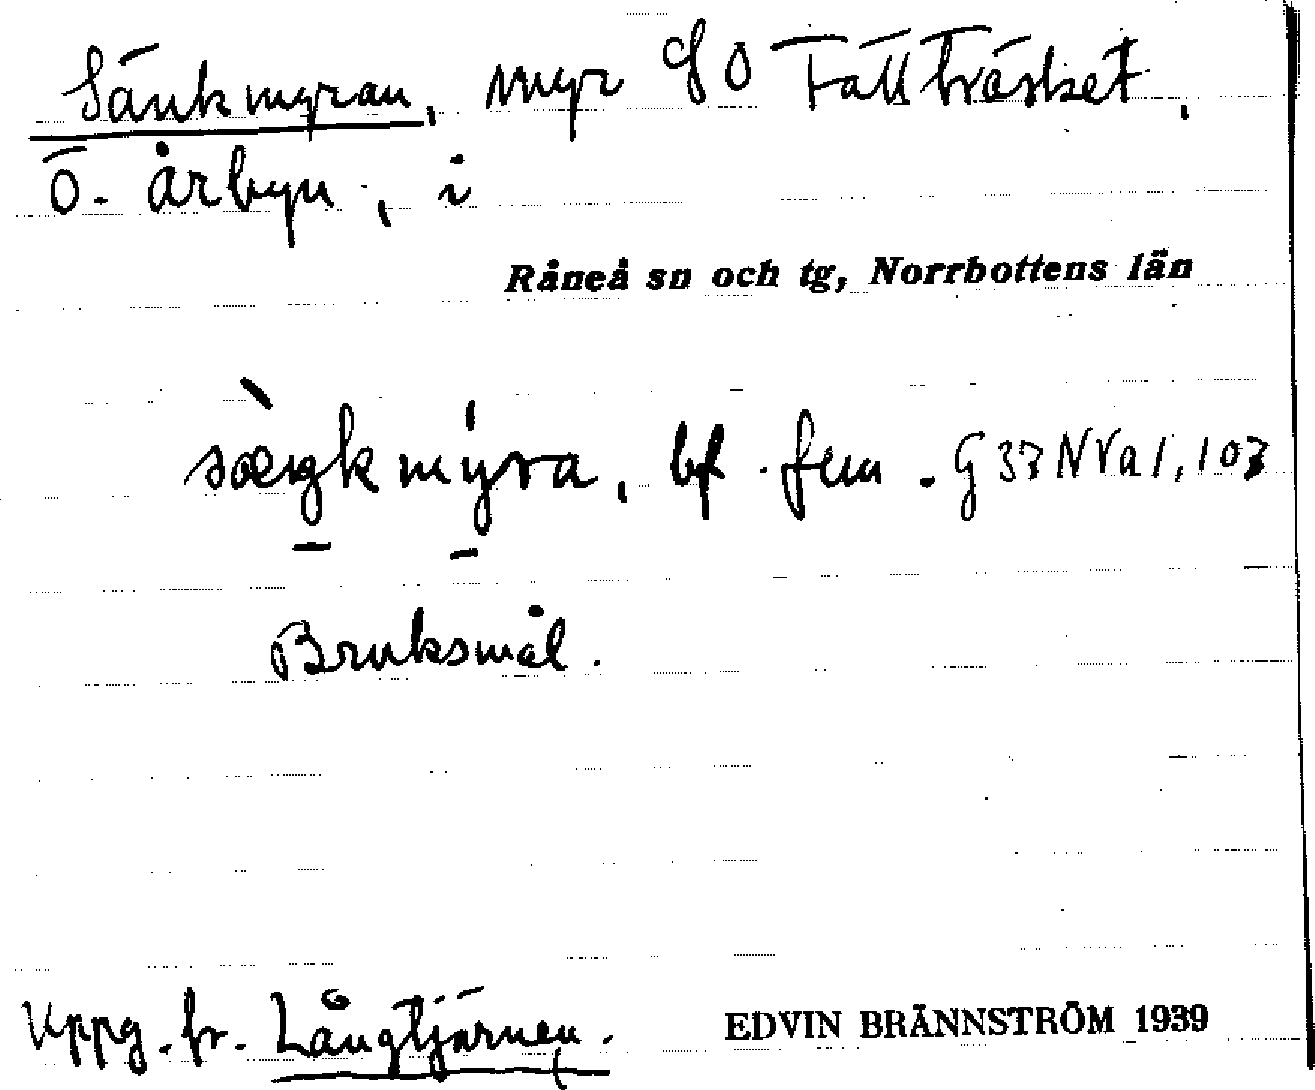 Sänkmyran, myr SO Tällträsket,
Ö. årbyn, i
Råneå sn och tg, Norrbottens län
sængkmýra, bf. fem. G 37 NVa1, 103
Bruksmål.
Uppg. fr. Långtjärnen.
EDVIN BRÄNNSTRÖM 1939